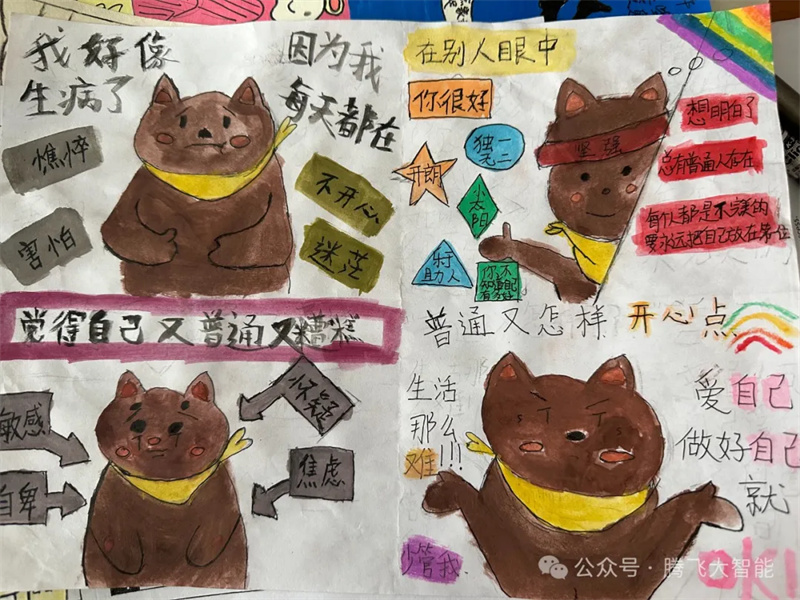 我好像
生病了
因为我
每天都在
憔悴
害怕
不开心
迷茫
觉得自己又普通又糟糕
在别人眼中
你很好
独一
无二
开朗
小太
阳
助人
坚强
想明白了
总有普通人存在
每个人都是不完美的
普通又怎样 开心点
敏感
自卑
怀疑
焦虑
生活
那么
难!!!
少管我
爱自己
做好自己
就
OK!
公众号·腾飞大智能